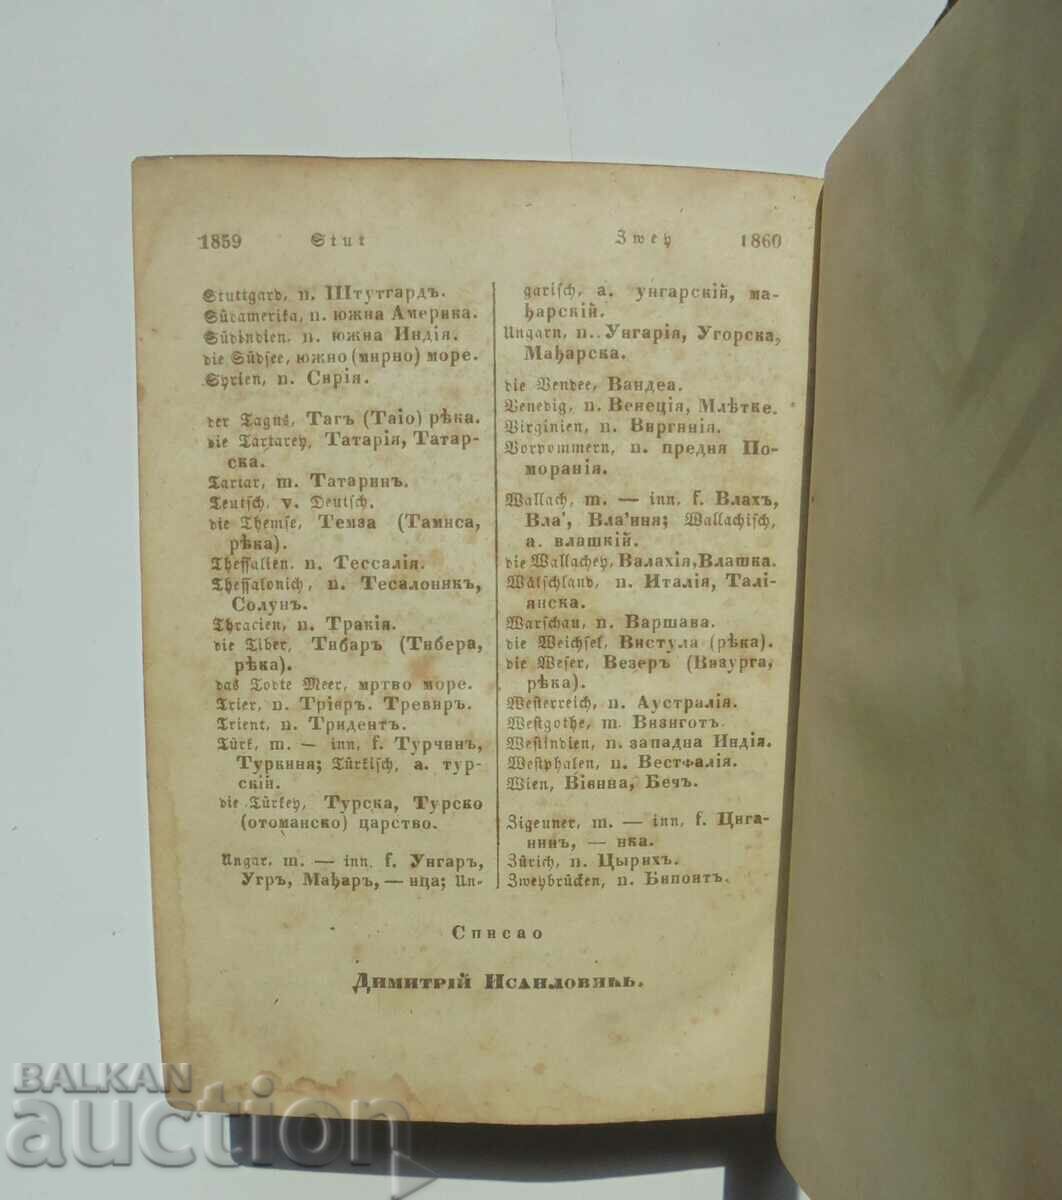 1859 Stut Zwey 1860
Stuttgard, n. Штутгардъ.
Südamerika, n. южна Америка.
Südindien, n. южна Индія.
die Südsee, южно (мирно) море.
Syrien, n. Сирія.
der Tagus, Тагъ (Таіо) рѣка.
die Tartarey, Татарія, Татар-
ска.
Tartar, m. Татаринъ.
Teutsch, v. Deutsch.
die Themse, Темза (Тамиса,
рѣка).
Thessalien. n. Тессалія.
Thessalonich, n. Тесалоникъ,
Солунъ.
Thracien, n. Тракія.
die Tiber, Тибаръ (Тибера,
рѣка).
das Todte Meer, мртво море.
Trier, n. Тріиръ. Тревиръ.
Trient, n. Тридентъ.
Türk, m. — inn, f. Турчинъ,
Туркиня; Türkisch, a. тур-
скій.
die Türkey, Турска, Турско
(отоманско) царство.
Ungar, m. — inn, f. Унгаръ,
Угръ, Маџаръ, — ица; Un-
garisch, a. унгарскій, ма-
ђарскій.
Ungarn, n. Унгарія, Угорска,
Мађарска.
die Vendee, Вандеа.
Venedig, n. Венеція, Млѣтке.
Virginien, n. Виргинія.
Vorpommern, n. предня По-
моранія.
Wallach, m. — inn, f. Влахъ,
Вла', Вла'иня; Wallachisch,
a. влашкій.
die Wallachey, Валахія, Влашка.
Wälschland, n. Италія, Талі-
янска.
Warschau, n. Варшава.
die Weichsel, Вистула (рѣка).
die Weser, Везеръ (Визурга,
рѣка).
Westerreich, n. Аустралія.
Westgothe, m. Визиготъ.
Westindien, n. западна Индія.
Westphalen, n. Вестфалія.
Wien, Віенна, Бечъ.
Zigeuner, m. — inn, f. Цига-
нинъ, — нка.
Zürich, n. Цырихъ.
Zweybrücken, n. Бипонтъ.
Списао
Димитрій Исаиловићь.
BALKAN
auction